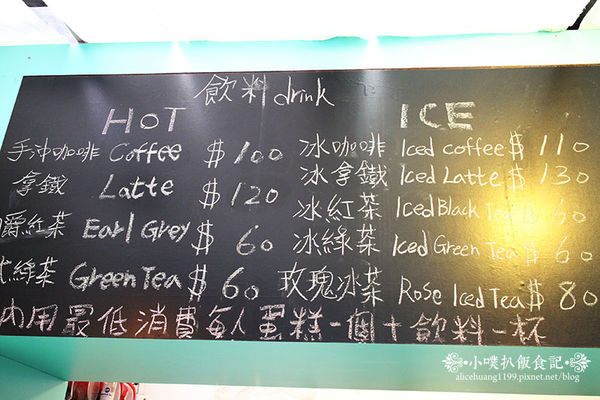 飲料 drink
HOT ICE
手沖咖啡 Coffee $100 冰咖啡 Iced coffee $110
拿鐵 Latte $120 冰拿鐵 Iced Latte $130
爵紅茶 Earl Grey $60 冰紅茶 Iced Black Tea $60
式綠茶 Green Tea $60 冰綠茶 Iced Green Tea $60
玫瑰冰茶 Rose Iced Tea $80
內用最低消費每人蛋糕一個十飲料一杯
小噗扒飯食記
alicehuang1199.pixnet.net/blog